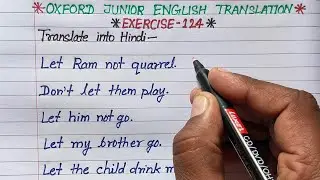 *OXFORD JUNIOR ENGLISH TRANSLATION*
*EXERCISE-124*
Translate into Hindi:-
Let Ram not quarrel.
Don't let them play.
Let him not go.
Let my brother go.
Let the child drink